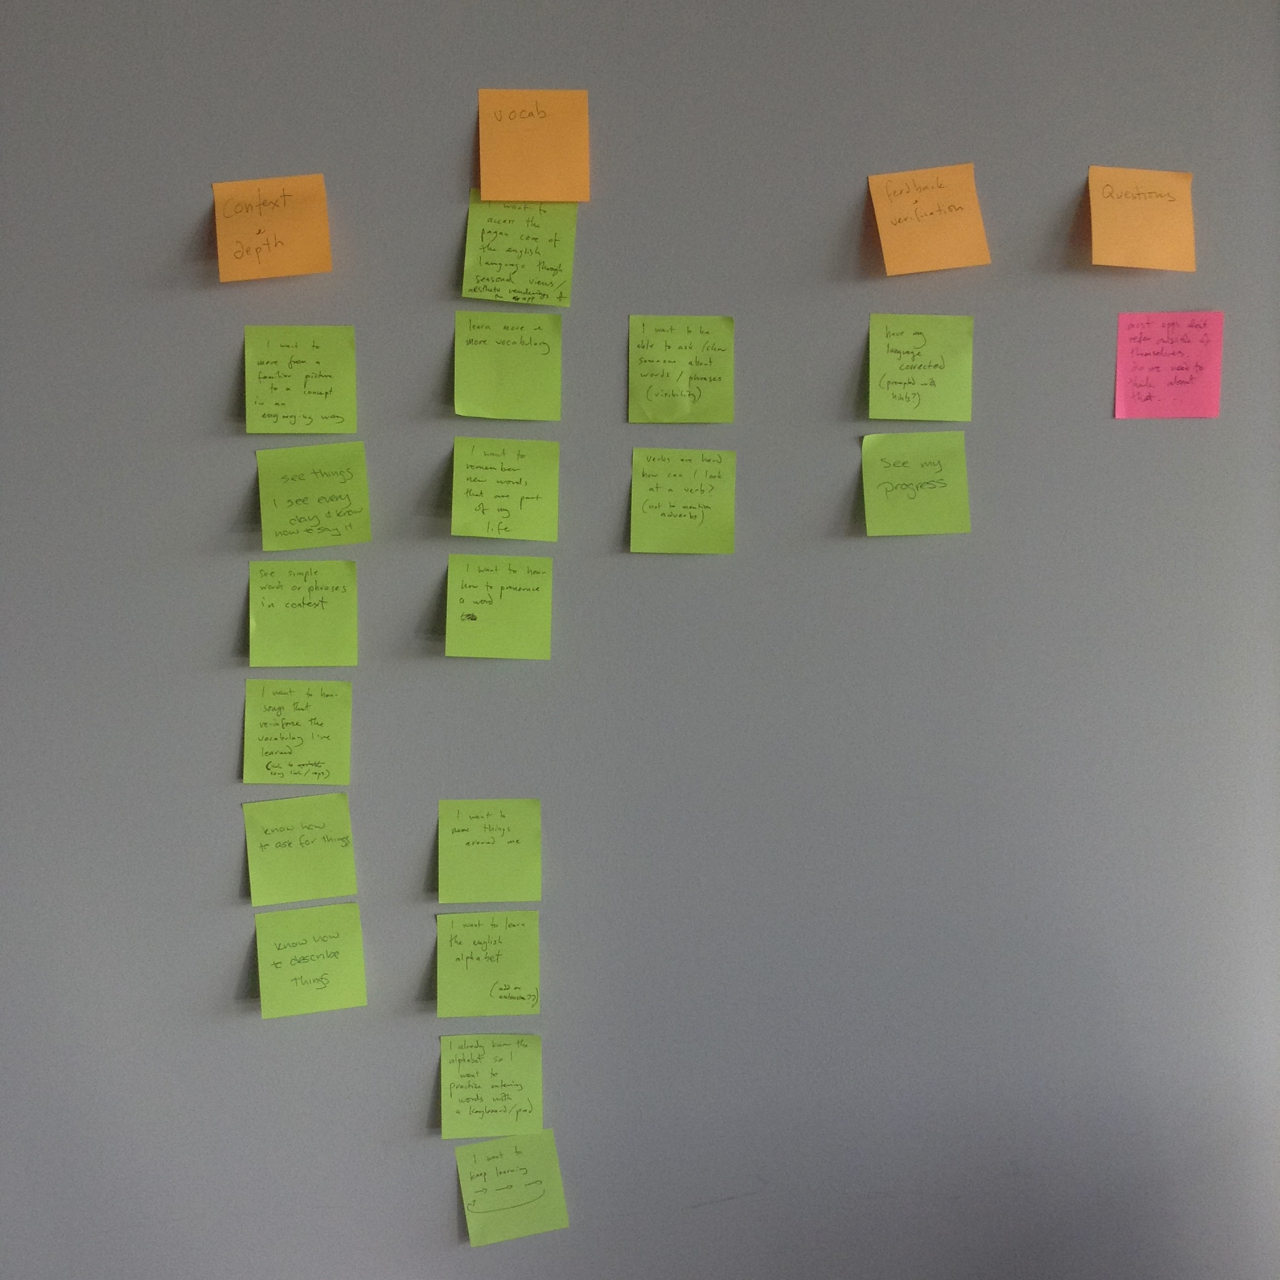 Context
&
depth
I want to
move from a
familiar picture
to a concept
in an
easy-going way
see things
I see every
day & know
how to say it
see simple
words or phrases
in context
I want to hear
songs that
re-inforce the
vocabulary I've
learned
know how
to ask for things
know how
to describe
things
vocab
I want to
access the
pagan core of
the english
language through
seasonal views/
aesthetic renderings of
the app
learn more &
more vocabulary
I want to
remember
new words
that are part
of my
life
I want to hear
how to pronounce
a word
I want to
name things
around me
I want to learn
the english
alphabet
(add on
extension??)
I already know the
alphabet so I
want to
practise entering
words with
a keyboard/pad
I want to
keep learning
I want to be
able to ask/show
someone about
words / phrases
(visibility)
verbs are hard
how can I look
at a verb?
(not to mention
adverbs)
feedback
&
verification
have my
language
corrected
(prompted with
hints?)
see my
progress
Questions
most apps don't
refer outside of
themselves.
Do we need to
think about
that...